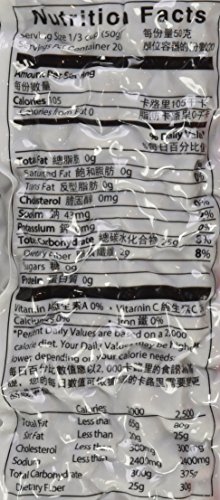 Nutrition Facts
Serving Size 1/3 cup (50g) 每份量50克
Servings Per Container 20
Amount Per Serving
每份數量
Calories 105 卡路里105
Calories from Fat 0 脂肪卡路里0
% Daily Value*
%每日百分比
Total Fat 總脂肪 0g
Saturated Fat 飽和脂肪 0g
Trans Fat 反型脂肪 0g
Cholesterol 膽固醇 0mg
Sodium 鈉 43mg
Potassium 鉀
Total Carbohydrate 總碳水化合物 25g 8%
Dietary Fiber 纖維 2g 8%
Sugars 糖 0g
Protein 蛋白質 0g
Vitamin A 維生素A 0% · Vitamin C 維生素C
Calcium 0% · Iron 鐵 0%
*Percent Daily Values are based on a 2,000
calorie diet. Your Daily Values may be higher
lower, depending on your calorie needs:
每日百分比數值應以2,000卡路里的食譜為
您的每日數值可 的卡路里需要更
Calories 2000 2,500
Total Fat Less than 65g 80g
Sat Fat Less than 20g 25g
Cholesterol Less than 300mg 300mg
Sodium Less than 2400mg 2400mg
Total Carbohydrate 300g 375g
Dietary Fiber 25g 30g